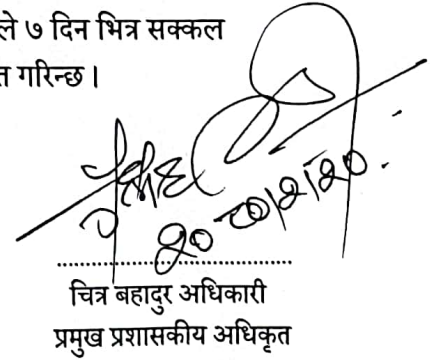 ले ७ दिन भित्र सक्कल
त गरिन्छ।
चित्र बहादुर अधिकारी
प्रमुख प्रशासकीय अधिकृत